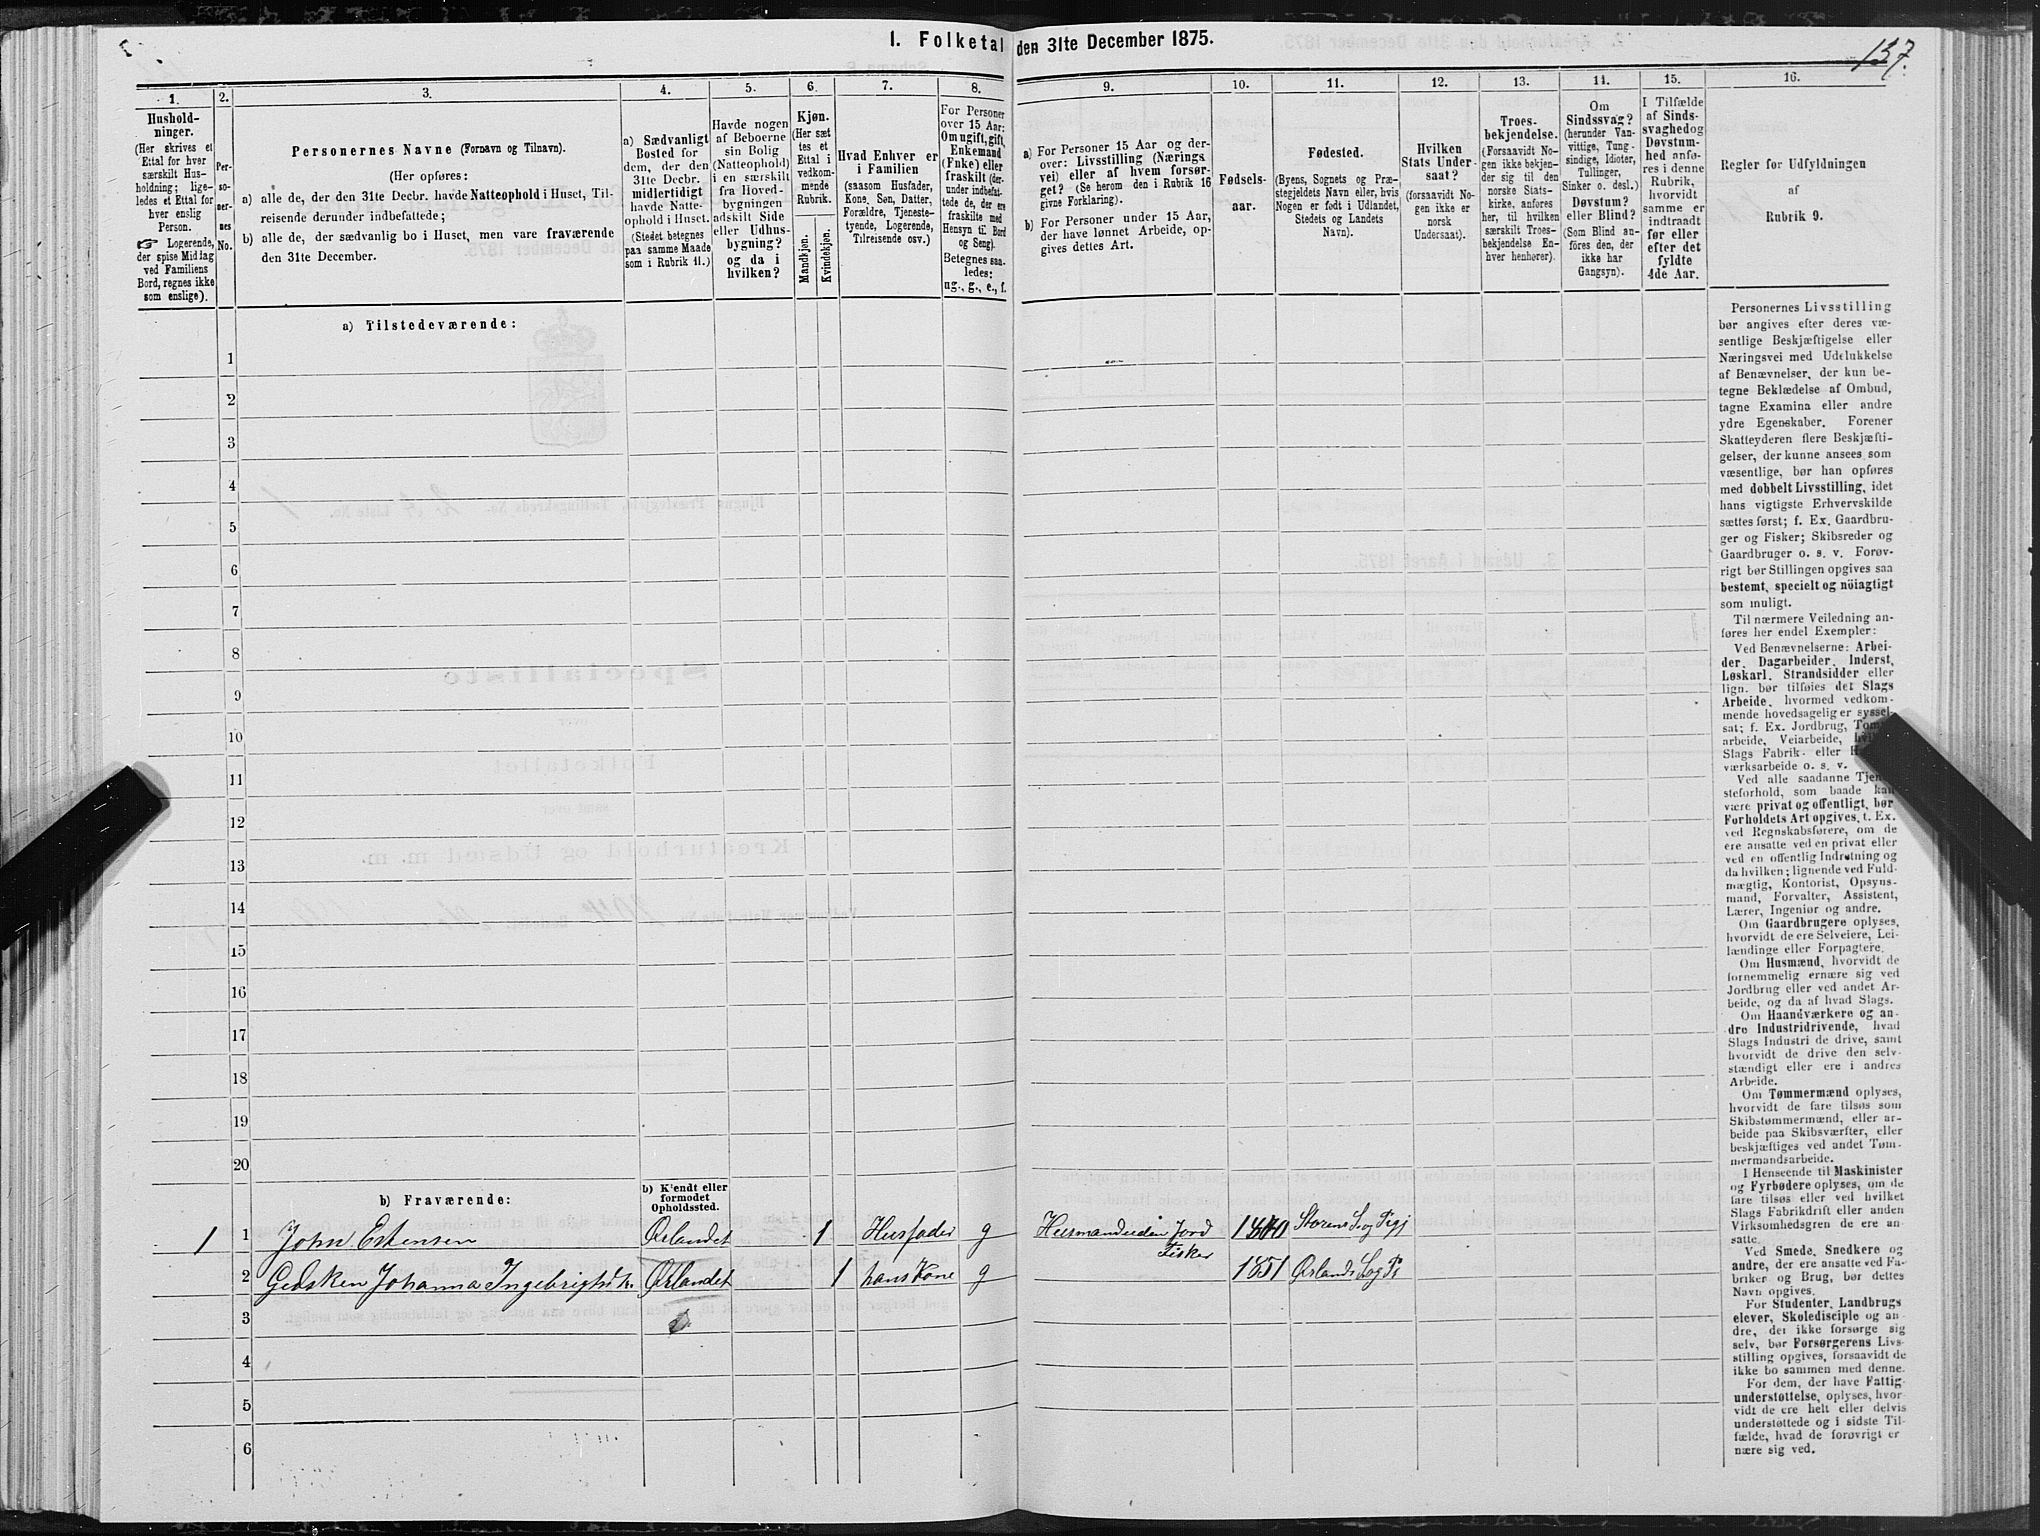 I. Folketal den 31te December 1875.
137.
1.
Hushold-
ninger.
(Her skrives et
Ettal for hver
særskilt Hus-
holdning; lige-
ledes et Ettal for
hver enslig
Person.
Logerende,
der spise Middag
ved Familiens
Bord, regnes ikke
som enslige).
2.
Per-
so-
ner-
nes
No.
3.
Personernes Navne (Fornavn og Tilnavn).
(Her opføres:
a) alle de, der den 31te Decbr. havde Natteophold i Huset, Til-
reisende derunder indbefattede;
b) alle de, der sædvanlig bo i Huset, men vare fraværende
den 31te December.
4.
a) Sædvanligt
Bosted for
dem, der den
31te Decbr.
midlertidigt
havde Natte-
ophold i Huset.
(Stedet betegnes
paa samme Maade
som i Rubrik 11.)
5.
Havde nogen
af Beboerne
sin Bolig
(Natteophold)
i en særskilt
fra Hoved-
bygningen
adskilt Side
eller Udhus-
bygning?
og da i
hvilken?
6.
Kjøn.
(Her sæt
tes et
Ettal i
vedkom-
mende
Rubrik.
Mandkjøn.
Kvindekjøn.
7.
Hvad Enhver er
i Familien
(saasom Husfader,
Kone, Søn, Datter,
Forældre, Tjeneste-
tyende, Logerende,
Tilreisende osv.)
8.
For Personer
over 15 Aar:
Om ugift, gift,
Enkemand
(Enke) eller
fraskilt (der-
under indbefat-
tede de, der ere
fraskilte med
Hensyn til Bord
og Seng).
Betegnes saa-
ledes:
ug., g., e., f.
9.
a) For Personer 15 Aar og der-
over: Livsstilling (Nærings
vei) eller af hvem forsør-
get? (Se herom den i Rubrik 16
givne Forklaring).
b) For Personer under 15 Aar,
der have lønnet Arbeide, op-
gives dettes Art.
10.
Fødsels-
aar.
11.
Fødested.
(Byens, Sognets og Præ-
stegjeldets Navn eller, hvis
Nogen er født i Udlandet,
Stedets og Landets
Navn).
12.
Hvilken
Stats Under-
saat?
(forsaavidt No-
gen ikke er
norsk
Undersaat).
13.
Troes-
bekjendelse.
(Forsaavidt No
gen ikke bekjen-
der sig til den
norske Stats-
kirke, anføres
her, til hvilken
særskilt Troes-
bekjendelse En-
hver henhører).
14.
Om
Sindssvag?
(herunder Van-
vittige, Tung-
sindige, Idioter,
Tullinger,
Sinker o. desl.)
Døvstum?
eller Blind?
(Som Blind an-
føres den, der
ikke har
Gangsyn).
15.
I Tilfælde
af Sinds-
svaghed og
Døvstum-
hed anfø-
res i denne
Rubrik,
hvorvidt
samme er
indtraadt
før eller
efter det
fyldte
4de Aar.
16.
Regler for Udfyldningen
af
Rubrik 9.
Personernes Livsstilling
bør angives efter deres væ-
sentlige Beskjæftigelse eller
Næringsvei med Udelukkelse
af Benævnelser, der kun be-
tegne Beklædelse af Ombud,
tagne Examina eller andre
ydre Egenskaber. Forener
Skatteyderen flere Beskjæfti-
gelser, der kunne ansees som
væsentlige, bør han opføres
med dobbelt Livsstilling, idet
hans vigtigste Erhvervskilde
sættes først; f. Ex. Gaardbru-
ger og Fisker; Skibsreder og
Gaardbruger o. s. v. Forøv-
rigt bør Stillingen opgives saa
bestemt, specielt og nöiagtigt
som muligt.
Til nærmere Veiledning an-
føres her endel Exempler:
Ved Benævnelserne: Arbei-
der, Dagarbeider, Inderst,
Løskarl, Strandsidder eller
lign. bør tilføies det Slags
Arbeide, hvormed vedkom-
mende hovedsagelig er syssel-
sat; f. Ex. Jordbrug,
arbeide, Veiarbeide,
Slags Fabrik- eller
værksarbeide o. s. v.
Ved alle saadanne
steforhold, som baade kan
være privat og offentligt, bør
Forholdets Art opgives, t. Ex.
ved Regnskabsførere, om de
ere ansatte ved en privat eller
ved en offentlig Indretning og
da hvilken; lignende ved Fuld-
mægtig, Kontorist, Opsyns-
mand, Forvalter, Assistent,
Lærer, Ingeniør og andre.
Om Gaardbrugere oplyses,
hvorvidt de ere Selveiere, Lei-
lændinge eller Forpagtere.
Om Husmænd, hvorvidt de
fornemmelig ernære sig ved
Jordbrug eller ved andet Ar-
beide, og da af hvad Slags.
Om Haandværkere og an-
dre Industridrivende, hvad
Slags Industri de drive, samt
hvorvidt de drive den selv-
stændigt eller ere i andres
Arbeide.
Om Tømmermænd oplyses,
hvorvidt de fare tilsøs som
Skibstømmermænd, eller ar-
beide paa Skibsværfter, eller
beskjæftiges ved andet Tøm-
mermandsarbeide.
I Henseende til Maskinister
og Fyrbødere oplyses, om de
fare tilsøs eller ved hvilket
Slags Fabrikdrift eller anden
Virksomhedsgren de ere an-
satte.
Ved Smede, Snedkere og
andre, der ere ansatte ved Fa-
briker og Brug, bør dettes
Navn opgives.
For Studenter, Landbrugs
elever, Skoledisciple og an-
dre, der ikke forsørge sig
selv, bør Forsørgerens Livs-
stilling opgives, forsaavidt de
ikke bo sammen med denne.
For dem, der have Fattig-
understøttelse, oplyses, hvor-
vidt de ere helt eller delvis
understøttede og i sidste Til-
fælde, hvad de forøvrigt er
nære sig ved.
a) Tilstedeværende:
1
2
3
4
5
6
7
8
9
10
11
12
13
14
15
16
17
18
19
20
b) Fraværende:
b) Kjendt eller
formodet
Opholdssted.
1 1 John Estensen Ørlandet 1 Husfader g Husmand uden Jord Fisker 1840 Storens S. og Pgj
2 Gedsken Johanna Ingebrigtsdtr. Ørlandet 1 hans Kone g 1851 Ørlands S og P
3
4
5
6